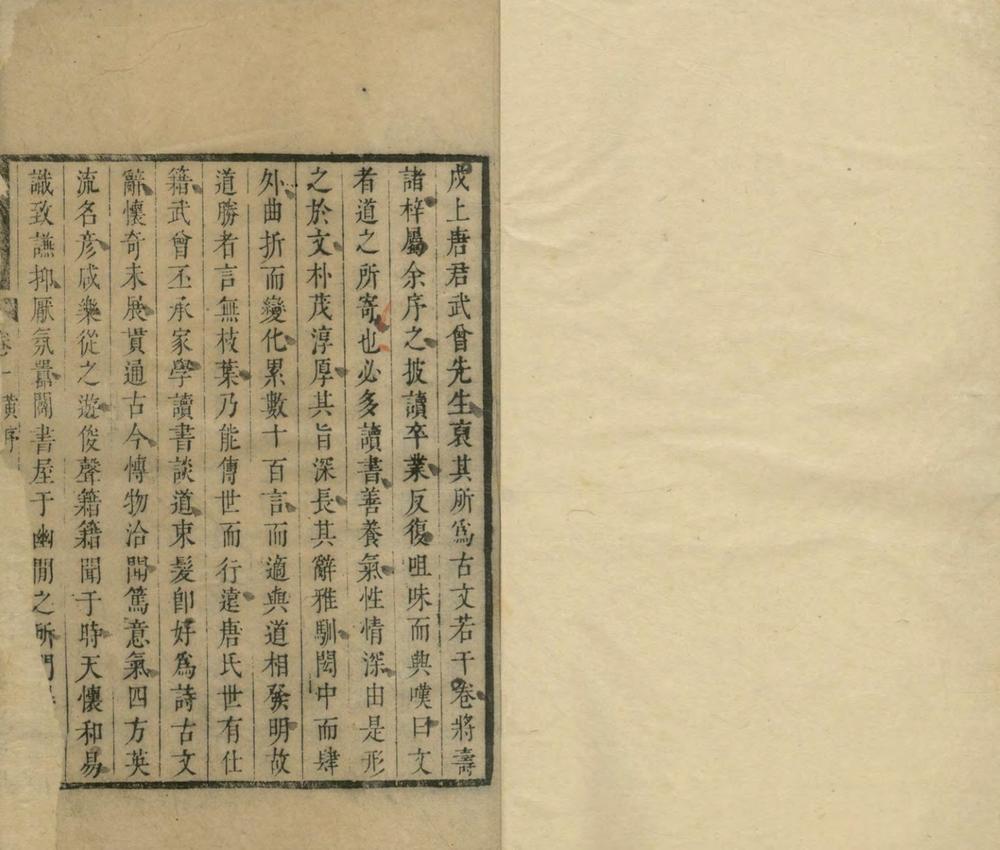 戍上唐君武曾先生裒其所爲古文若干卷將壽
諸梓屬余序之披讀卒業反復咀味而興嘆曰文
者道之所寄也必多讀書善養氣性情深由是形
之於文朴茂淳厚其旨深長其辭雅馴閎中而肆
外曲折而變化累數十百言而適與道相發明故
道勝者言無枝葉乃能傳世而行遠唐氏世有仕
籍武曾丕承家學讀書談道束髮卽好爲詩古文
辭懷奇未展貫通古今愽物洽聞篤意氣四方英
流名彦咸樂從之遊俊聲籍籍聞于時天懷和易
識致謙抑厭氛囂闢書屋于幽閒之所門
卷一 黃序